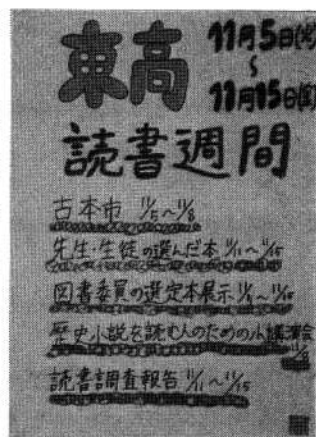 東高
11月5日(火)
〜
11月15日(金)
読書週間
古本市 11/5〜11/8
先生・生徒の選んだ本 11/11〜11/15
図書委員の選定本展示
歴史小説を読む人のための小講演会
11/8
読書調査報告 11/11〜11/15